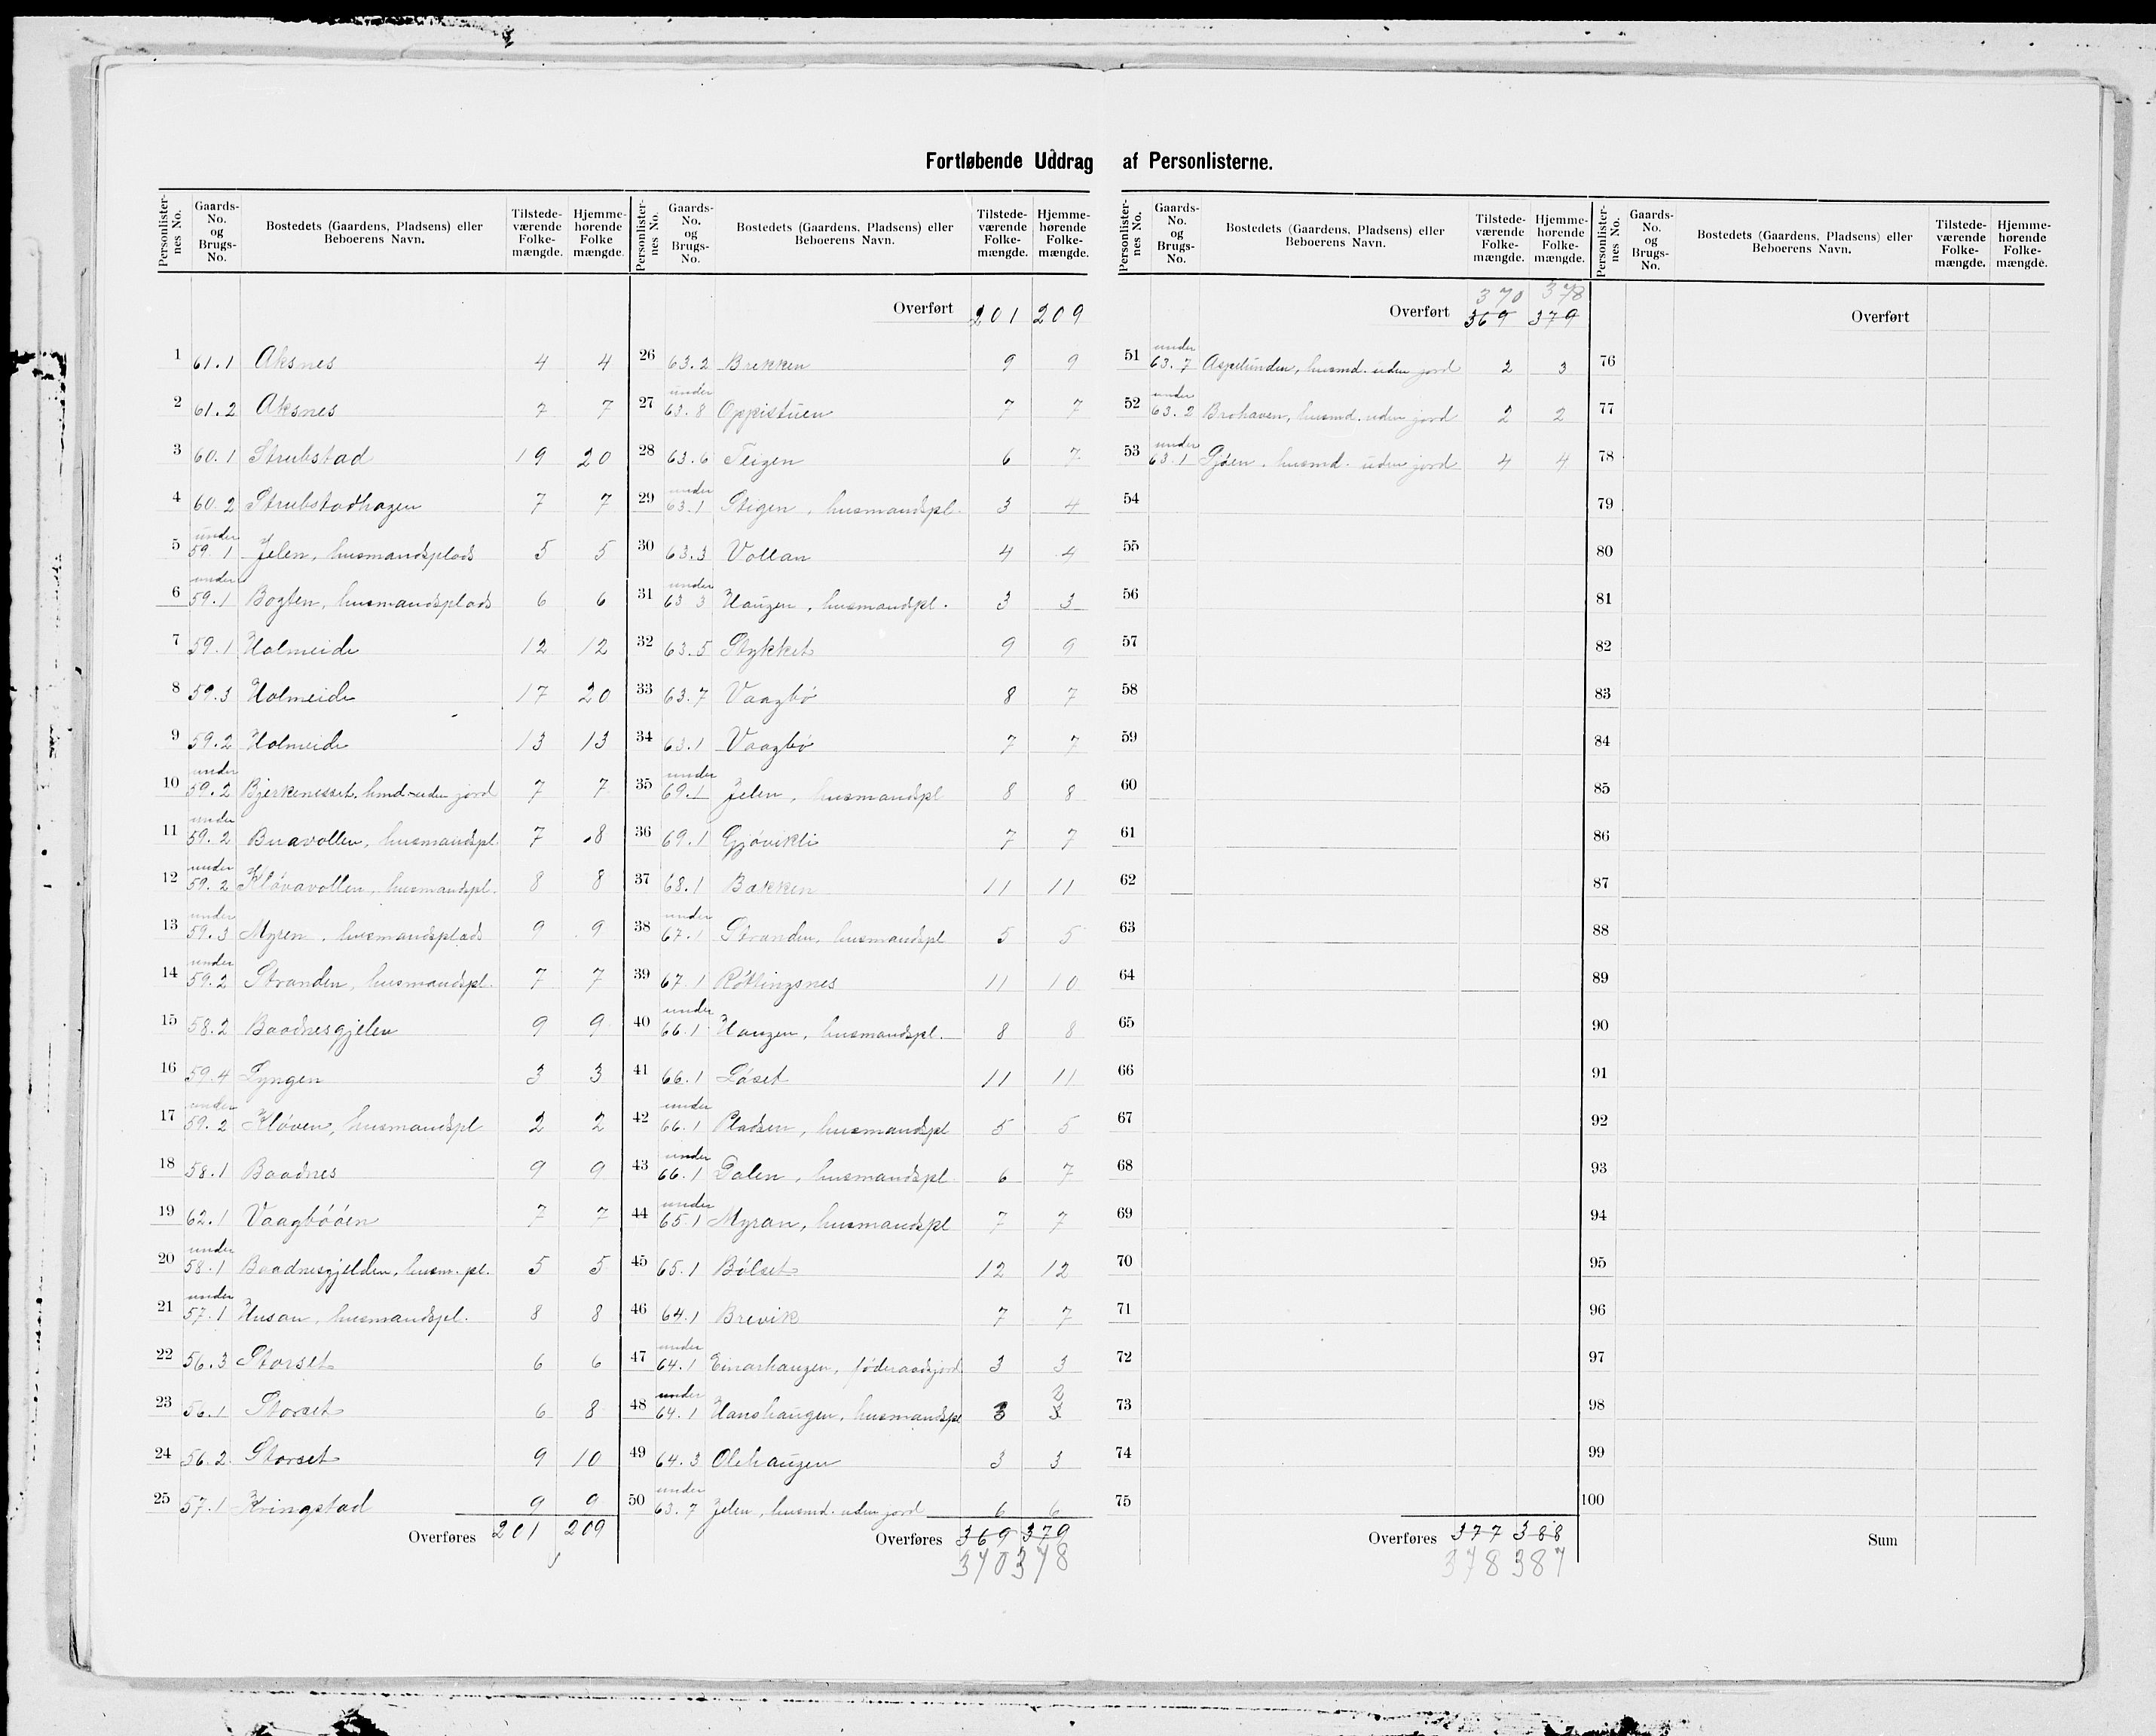 Fortløbende Uddrag af Personlisterne.
Personlisternes No. | Gaards-No. og Brugs-No. | Bostedets (Gaardens, Pladsens) eller Beboerens Navn. | Tilstedeværende Folkemængde. | Hjemmehørende Folkemængde.
1 61.1 Aksnes 4 4
2 61.2 Aksnes 7 7
3 60.1 Strubstad 19 20
4 60.2 Strubstadhagen 7 7
5 under 59.1 Jelen, husmandsplads 5 5
6 under 59.1 Bogten, husmandsplads 6 6
7 59.1 Holmeide 12 12
8 59.3 Holmeide 17 20
9 59.2 Holmeide 13 13
10 under 59.2 Bjerkenesset, hmd uden jord 7 7
11 under 59.2 Buavollen, husmandspl. 7 8
12 under 59.2 Kløvavollen, husmandspl. 8 8
13 under 59.3 Myren, husmandsplads 9 9
14 under 59.2 Stranden, husmandspl. 7 7
15 58.2 Baadnesgjelen 9 9
16 59.4 Lyngen 3 3
17 under 59.2 Kløven, husmandspl 2 2
18 58.1 Baadnes 9 9
19 62.1 Vaagbøøen 7 7
20 under 58.1 Baadnesgjelden, husm. pl. 5 5
21 under 57.1 Husan, husmandspl. 8 8
22 56.3 Storset 6 6
23 56.1 Storset 6 8
24 56.2 Storset 9 10
25 57.1 Kringstad 9 9
Overføres 201 209
Personlisternes No. | Gaards-No. og Brugs-No. | Bostedets (Gaardens, Pladsens) eller Beboerens Navn. | Tilstedeværende Folkemængde. | Hjemmehørende Folkemængde.
Overført 201 209
26 63.2 Brekken 9 9
27 under 63.8 Oppistuen 7 7
28 63.6 Teigen 6 7
29 under 63.1 Stigen, husmandspl. 3 4
30 63.3 Vollan 4 4
31 under 63.3 Haugen, husmandspl. 3 3
32 63.5 Stykket 9 9
33 63.7 Vaagbø 8 7
34 63.1 Vaagbø 7 7
35 under 69.1 Jelen, husmandspl 8 8
36 69.1 Gjøvikli 7 7
37 68.1 Bakken 11 11
38 under 67.1 Stranden, husmandspl 5 5
39 67.1 Røttingsnes 11 10
40 under 66.1 Haugen, husmandspl. 8 8
41 66.1 Løset 11 11
42 under 66.1 Pladsen, husmandspl 5 5
43 under 66.1 Dalen, husmandspl 6 7
44 under 65.1 Myran, husmandspl 7 7
45 65.1 Bølset 12 12
46 64.1 Brevik 7 7
47 under 64.1 Einarhaugen, føderaadsjord 3 3
48 under 64.1 Hanshaugen, husmandspl 3 3 2
49 64.3 Olehaugen 3 3
50 under 63.7 Jelen, husmd. uden jord 6 6
Overføres 369 379
370 378
Personlisternes No. | Gaards-No. og Brugs-No. | Bostedets (Gaardens, Pladsens) eller Beboerens Navn. | Tilstedeværende Folkemængde. | Hjemmehørende Folkemængde.
370 378
Overført 369 379
51 under 63.7 Aspelunden, husmd. uden jord 2 3
52 under 63.2 Brohaven, husmd. uden jord 2 2
53 under 63.1 Gjøen, husmd. uden jord 4 4
54
55
56
57
58
59
60
61
62
63
64
65
66
67
68
69
70
71
72
73
74
75
Overføres 377 388
378 387
Personlisternes No. | Gaards-No. og Brugs-No. | Bostedets (Gaardens, Pladsens) eller Beboerens Navn. | Tilstedeværende Folkemængde. | Hjemmehørende Folkemængde.
Overført
76
77
78
79
80
81
82
83
84
85
86
87
88
89
90
91
92
93
94
95
96
97
98
99
100
Sum